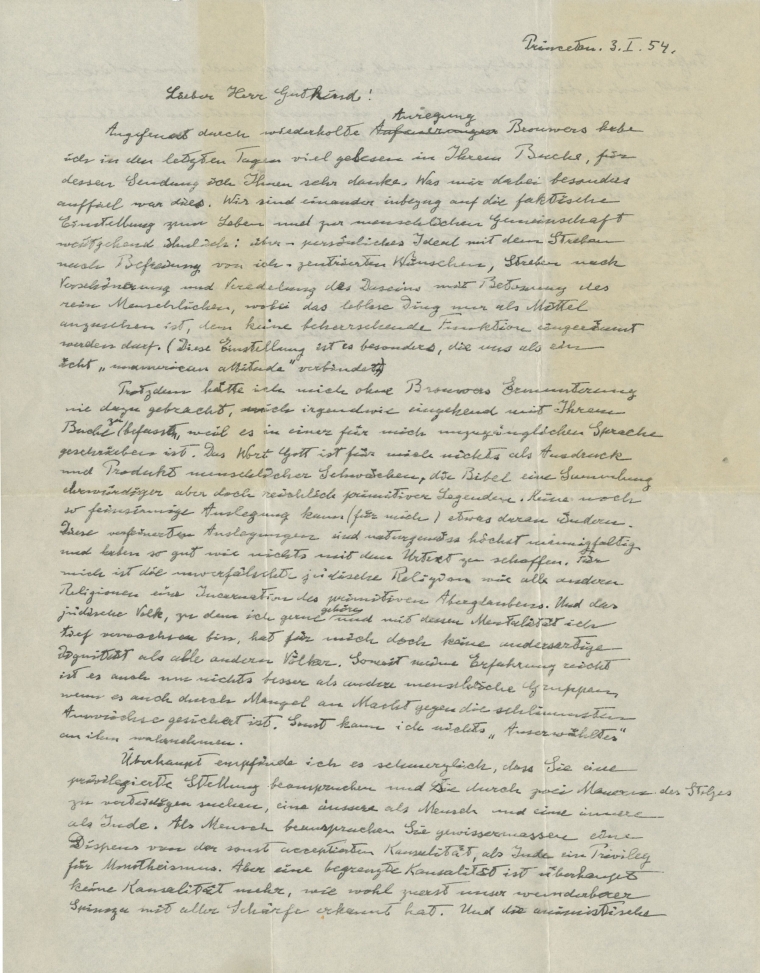 Princeton. 3. I. 54.
Lieber Herr Gutkind!
Anregung
Angefeuert durch wiederholte Brouwers habe
ich in den letzten Tagen viel gelesen in Ihrem Buche, für
dessen Sendung ich Ihnen sehr danke. Was mir dabei besonders
auffiel war dies. Wir sind einander inbezug auf die faktische
Einstellung zum Leben und zur menschlichen Gemeinschaft
weitgehend ähnlich: über-persönliches Ideal mit dem Streben
nach Befreiung von ich-zentrierten Wünschen, Streben nach
Verschönerung und Veredelung des Daseins mit Betonung des
rein Menschlichen, wobei das leblose Ding nur als Mittel
anzusehen ist, dem keine beherrschende Funktion eingeräumt
werden darf. (Diese Einstellung ist es besonders, die uns als ein
echt „unamerican attitude" verbindet)
Trotzdem hätte ich mich ohne Brouwers Ermunterung
nie dazu gebracht, mich irgendwie eingehend mit Ihrem
Buche zu befassen, weil es in einer für mich unzugänglichen Sprache
geschrieben ist. Das Wort Gott ist für mich nichts als Ausdruck
und Produkt menschlicher Schwächen, die Bibel eine Sammlung
ehrwürdiger aber doch reichlich primitiver Legenden. Keine noch
so feinsinnige Auslegung kann (für mich) etwas daran ändern.
Diese verfeinerten Auslegungen sind naturgemäss höchst mannigfaltig
und haben so gut wie nichts mit dem Urtext zu schaffen. Für
mich ist die unverfälschte jüdische Religion wie alle anderen
Religionen eine Incarnation des primitiven Aberglaubens. Und das
jüdische Volk, zu dem ich gerne gehöre und mit dessen Mentalität ich
tief verwachsen bin, hat für mich doch keine andersartige
Dignität als alle anderen Völker. Soweit meine Erfahrung reicht
ist es auch um nichts besser als andere menschliche Gruppen,
wenn es auch durch Mangel an Macht gegen die schlimmsten
Auswüchse gesichert ist. Sonst kann ich nichts „Auserwähltes"
an ihm wahrnehmen.
Überhaupt empfinde ich es schmerzlich, dass Sie eine
privilegierte Stellung beanspruchen und sie durch zwei Mauern des Stolzes
zu verteidigen suchen, eine äussere als Mensch und eine innere
als Jude. Als Mensch beanspruchen Sie gewissermassen einen
Dispens von der sonst acceptierten Kausalität, als Jude ein Privileg
für Monotheismus. Aber eine begrenzte Kausalität ist überhaupt
keine Kausalität mehr, wie wohl zuerst unser wunderbarer
Spinoza mit aller Schärfe erkannt hat. Und die animistische